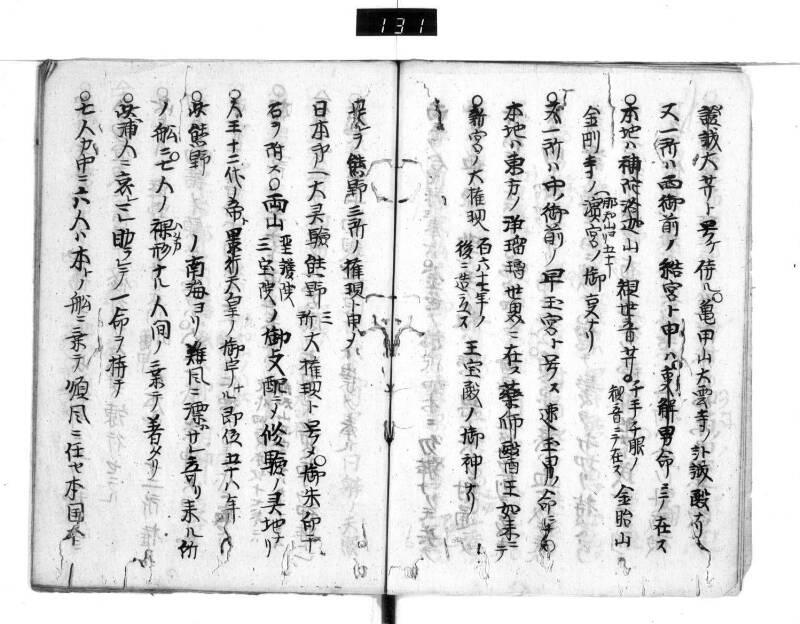 131
證誠大井ト号ケ侍ル〇亀甲山大雲寺ノ證誠殿ナリ
又一所ハ西御前ノ結宮ト申ハ事解男命ニテ在ス
〇本地ハ補陀洛迦山ノ観世音井〇千手千眼ノ観音ニテ在ス金胎山
金剛寺ノ那知山ヨリ五十丁濱宮ノ御莫ナリ
〇又一所ハ中御前ノ早玉宮ト号ス速玉男ノ命
本地ハ東方ノ浄瑠璃世界ニ在ス薬師醫王如来ニテ
〇新宮ノ大権現百六十七年ノ後ニ造ラス王宝殿ノ御神ナリ
是ヲ熊野三所ノ権現ト申ス
日本第一大灵驗熊野三所大権現ト号メ〇御朱印千
石ヲ附ス〇両山聖護院三宝院ノ御支配ニテ修驗ノ灵地ナリ
〇人王十二代ノ帝景行天皇ノ御宇ナル即位五十八年
〇此熊野ノ南海ヨリ難風ニ漂サレ寄リ来ル所
ノ舩ニ〇七人ノ裸形ナル人間ノ乗テ着タリ
〇此浦人ニ哀ミ助ラレテ一命ヲ持チ
〇七人ノ中ニ六人ハ本トノ舩ニ乗テ順風ニ任セ本国